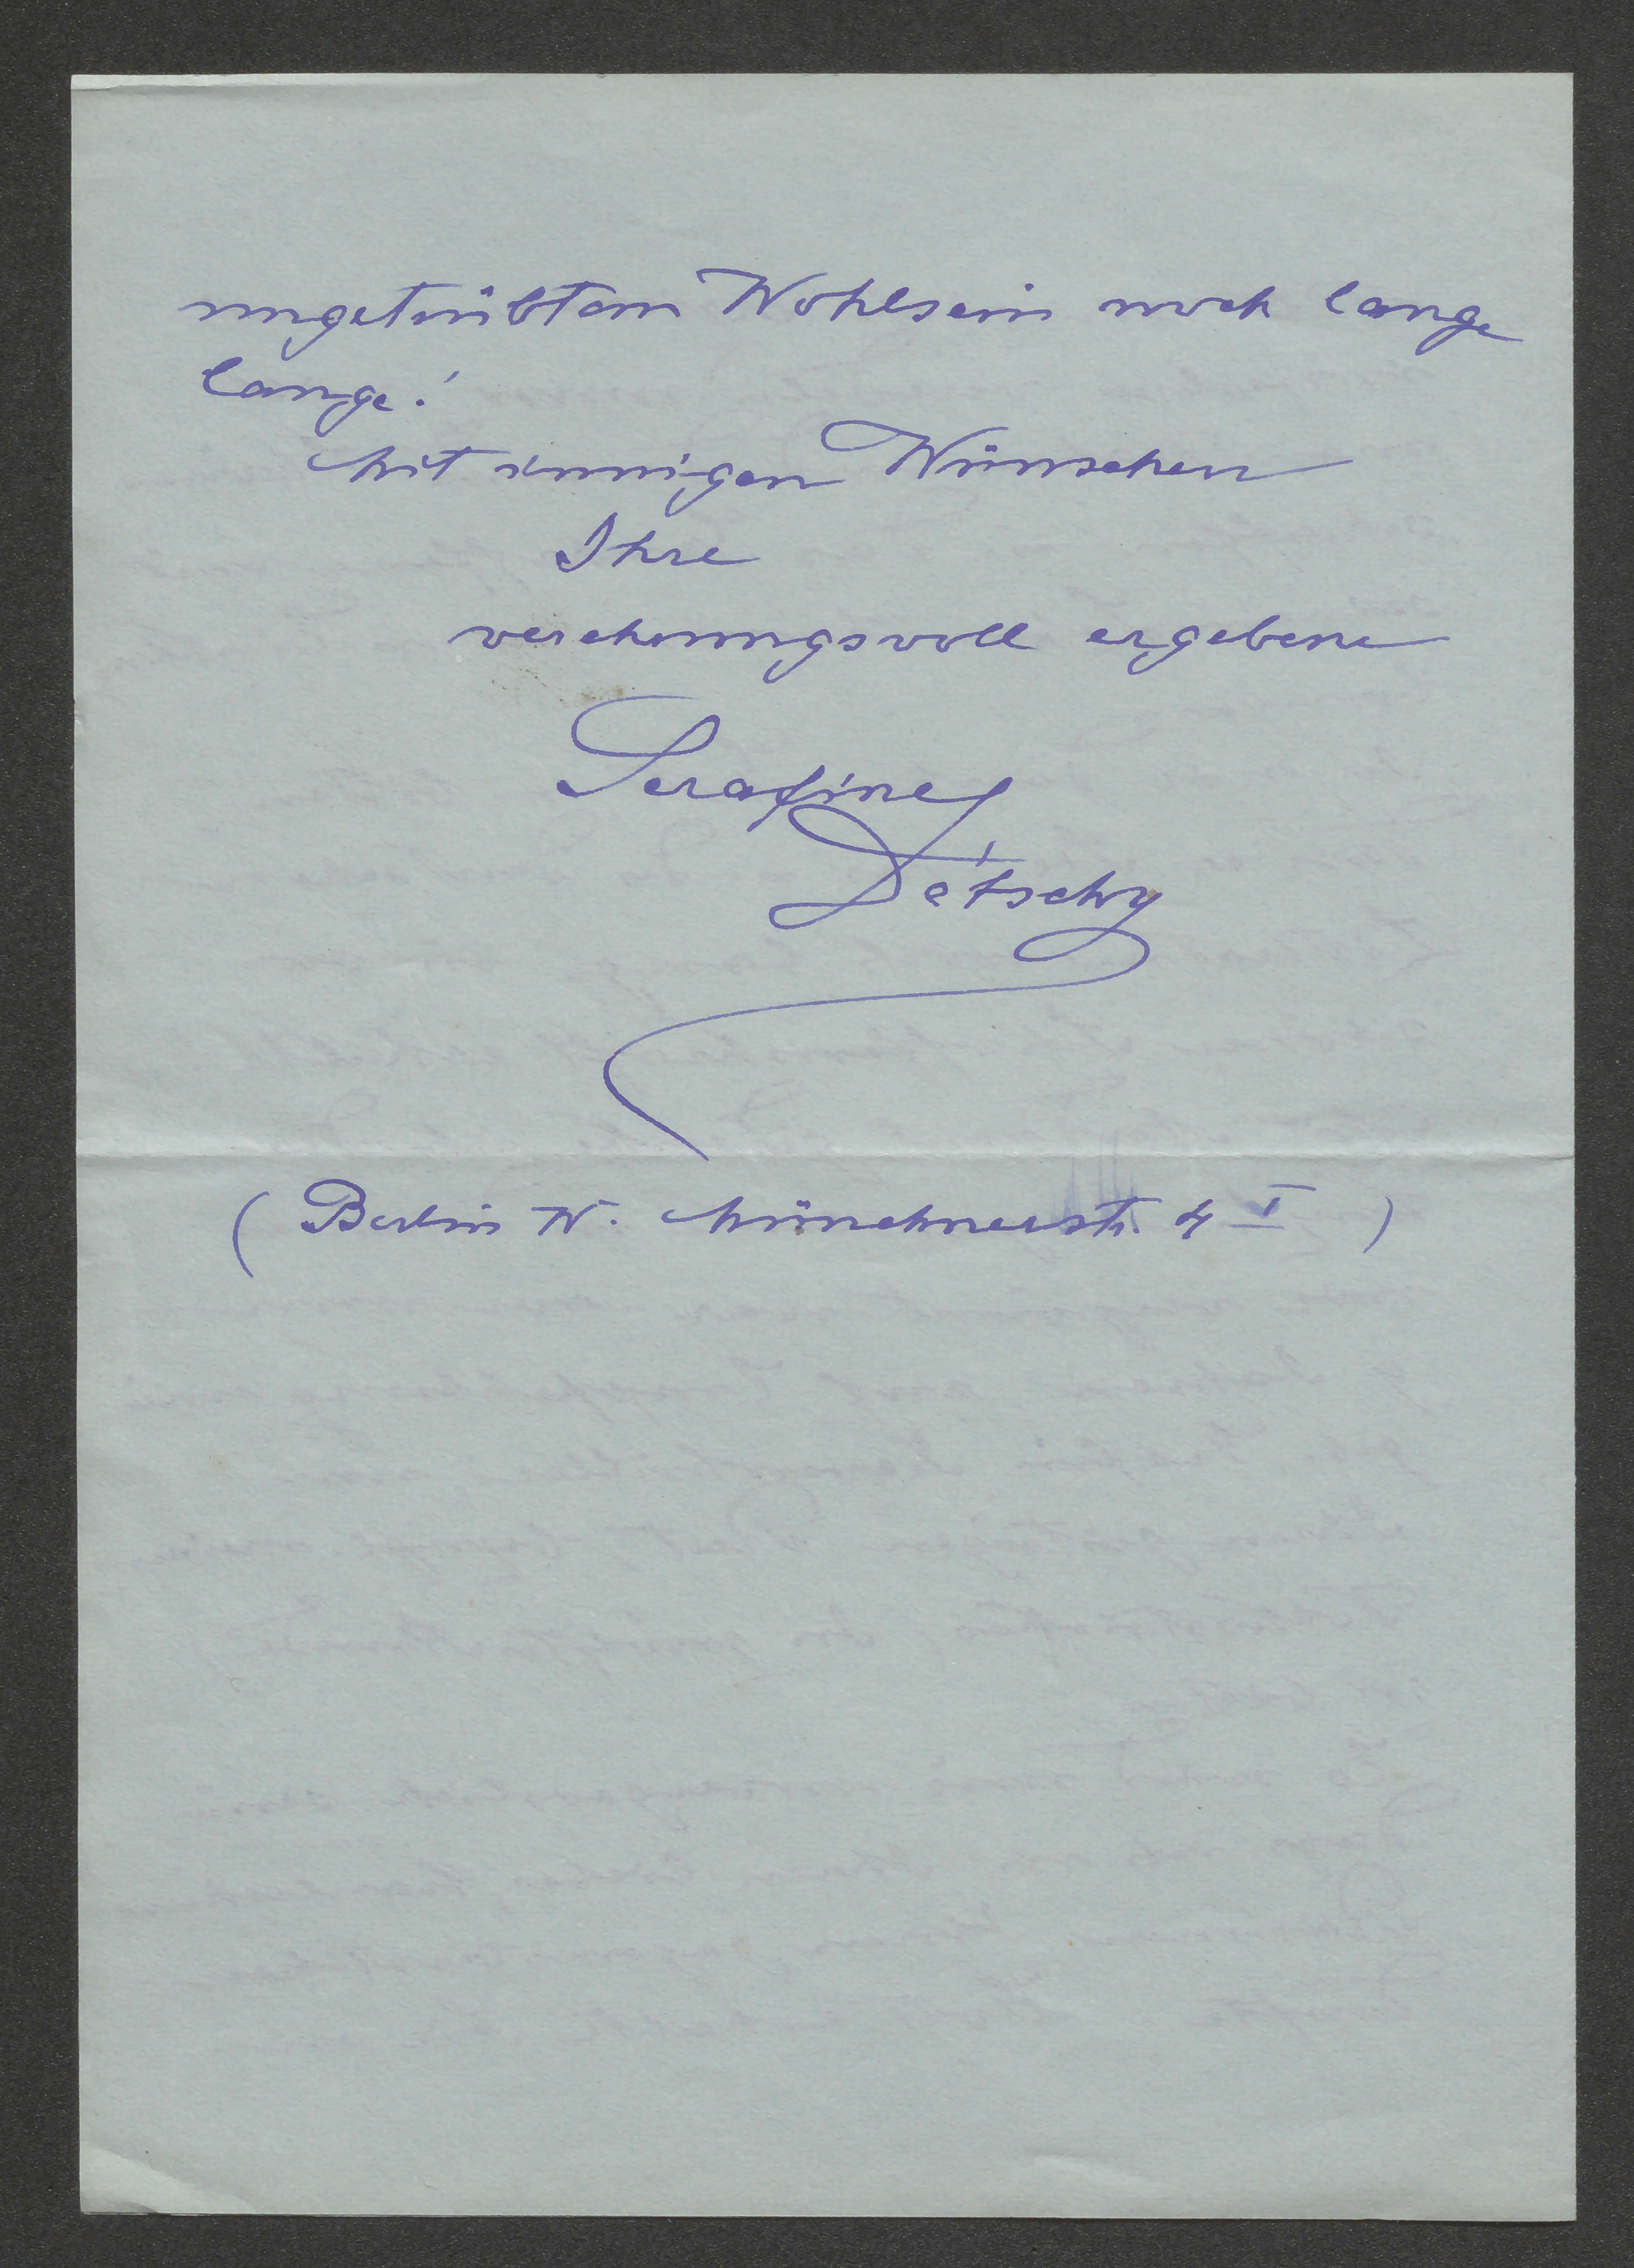 ungetrübtem Wohlsein noch lange
lange!
Mit innigen Wünschen
Ihre
verehrungsvoll ergebene
Serafine
Détschy
(Berlin W. Münchnerstr. 4 I)